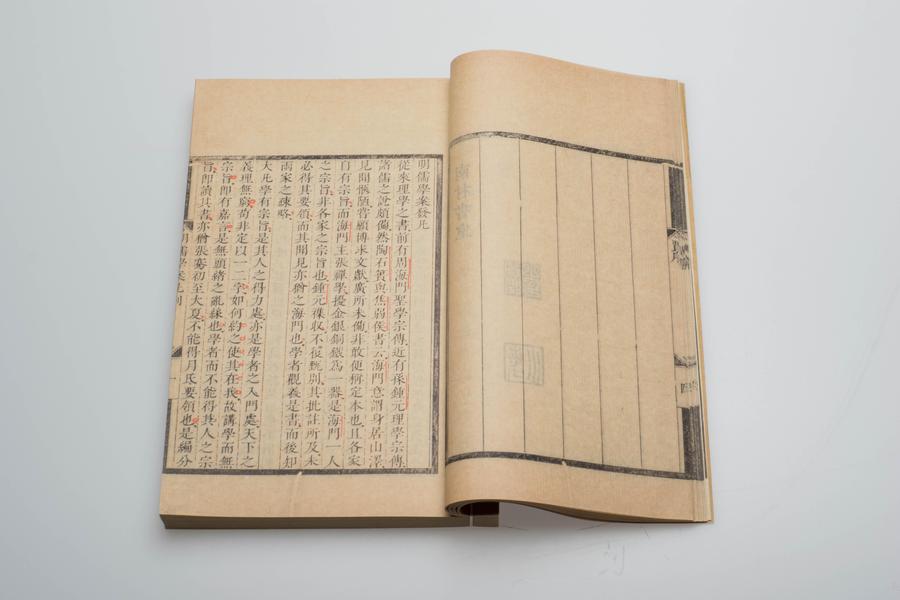 明儒學案發凡
從來理學之書前有周海門聖學宗傳近有孫鍾元理學宗傳
諸儒之說頗備然陶石簣與焦弱侯書云海門意謂身居山澤
見聞狹陋嘗願博求文獻廣所未備非敢便稱定本也且各家
自有宗旨而海門主張禪學擾金銀銅鐵為一器是海門一人
之宗旨非各家之宗旨也鍾元雜收不復甄別其批註所及未
必得其要領而其聞見亦猶之海門也學者觀羲是書而後知
兩家之疎略
大凡學有宗旨是其人之得力處亦是學者之入門處天下之
義理無窮苟非定以一二字如何約之使其在我故講學而無
宗旨即有嘉言是無頭緒之亂絲也學者而不能得其人之宗
旨即讀其書亦猶張騫初至大夏不能得月氏要領也是編分